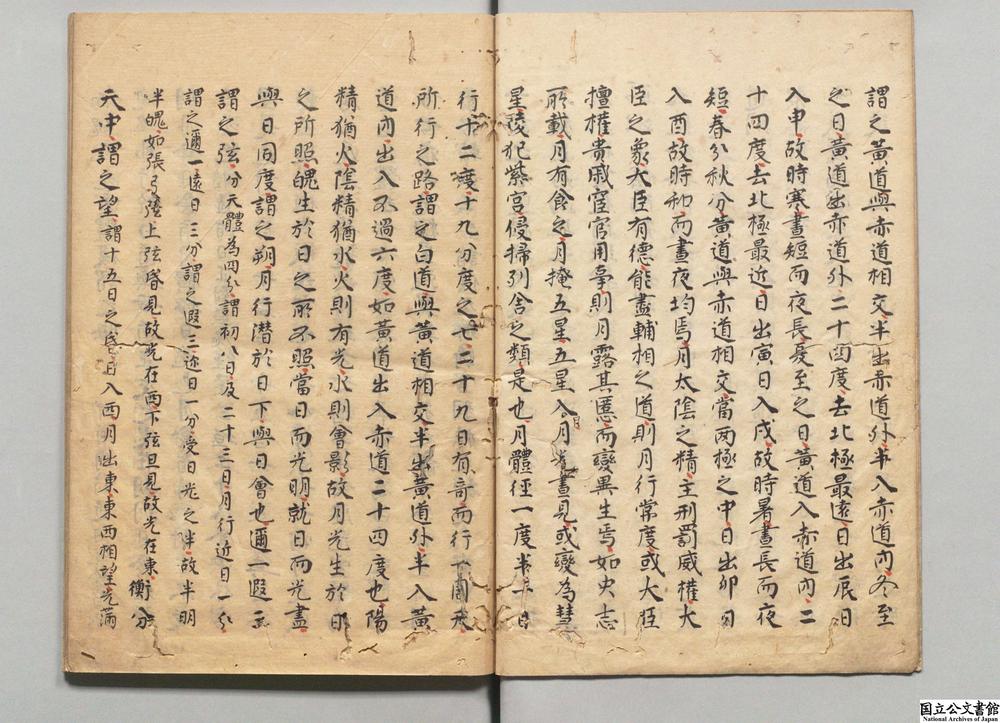 謂之黃道與赤道相交半出赤道外半入赤道內冬至
之日黃道出赤道外二十四度去北極最遠日出辰日
入申故時寒晝短而夜長夏至之日黃道入赤道內二
十四度去北極最近日出寅日入戌故時暑晝長而夜
短春分秋分黃道與赤道相交當兩極之中日出卯日
入酉故時和而晝夜均焉月太陰之精主刑罰威權大
臣之象大臣有德能盡輔相之道則月行常度或大臣
擅權貴戚宦官用事則月露其慝而變異生焉如史志
所載月有食之月掩五星五星入月月光晝見或變為彗
星陵犯紫宮侵掃列舍之類是也月體徑一度半一日
行十三度十九分度之七二十九日有奇而行一周天
所行之路謂之白道與黃道相交半出黃道外半入黃
道內出入不過六度如黃道出入赤道二十四度也陽
精猶火陰精猶水火則有光水則會影故月光生於日
之所照魄生於日之所不照當日而光明就日而光盡
與日同度謂之朔月行潛於日下與日會也邇一遐三
謂之弦分天體為四分謂初八日及二十三日月行近日一分
謂之邇一遠日三分謂之遐三迩日一分受日光之半故半明
半魄如張弓弦上弦昏見故光在西下弦旦見故光在東衡分
天中謂之望謂十五日之昏日入西月出東東西相望光滿
国立公文書館
National Archives of Japan